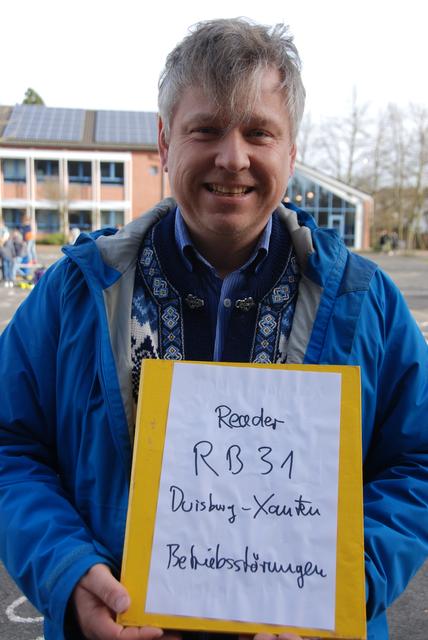 Reader
RB31
Duisburg-Xanten
Betriebsstörungen